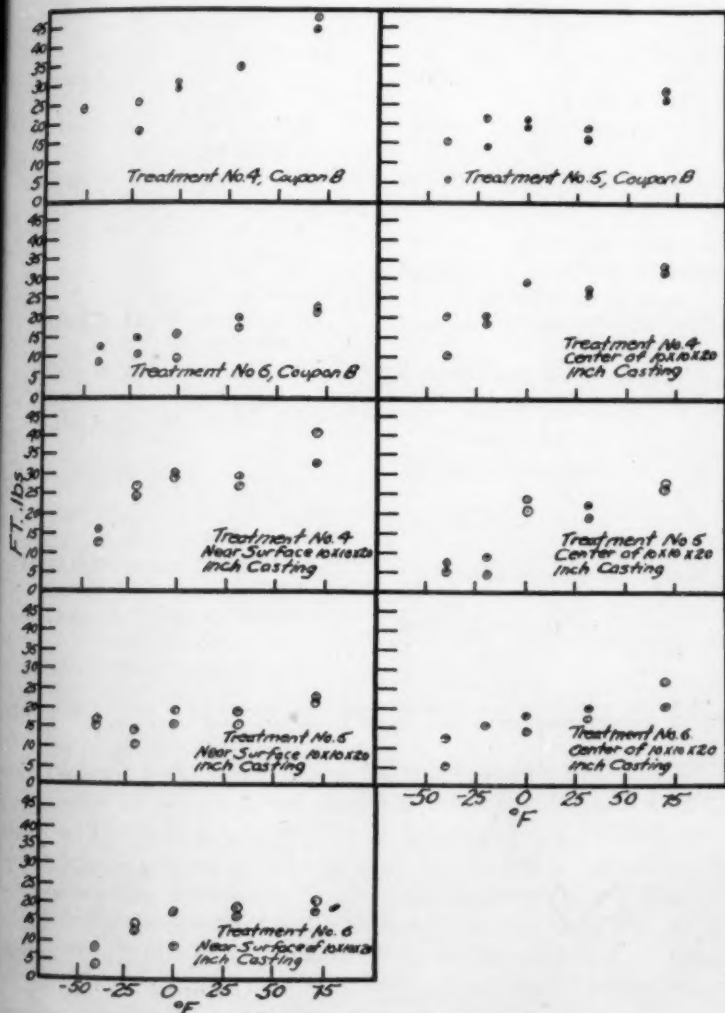 45
40
35
30
25
20
15
10
5
0
Treatment No.4, Coupon B
Treatment No.5, Coupon B
45
40
35
30
25
20
15
10
5
0
Treatment No 6, Coupon B
Treatment No.4
Center of 10X10X20
Inch Casting
FT. lbs
45
40
35
30
25
20
15
10
5
0
Treatment No. 4
Near Surface 10X10X20
Inch Casting
Treatment No 5
Center of 10X10X20
Inch Casting
45
40
35
30
25
20
15
10
5
0
Treatment No.5
Near Surface 10X10X20
Inch Casting
Treatment No.6
Center of 10X10X20
Inch Casting
-50 -25 0 25 50 75
°F
45
40
35
30
25
20
15
10
5
0
Treatment No. 6
Near Surface of 10X10X20
Inch Casting
-50 -25 0 25 50 75
°F